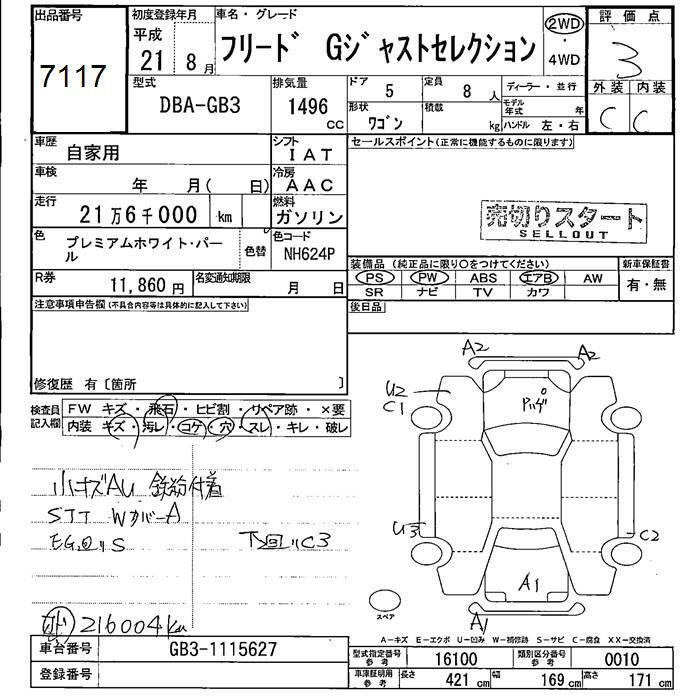 出品番号
7117
初度登録年月
平成
21年 8月
車名・グレード
フリード Gジャストセレクション
2WD
・
4WD
評価点
3
外装 内装
C C
型式
DBA-GB3
排気量
1496
CC
ドア
5
定員
8 人
形状
ワゴン
積載
kg
ディーラー・並行
モデル年式 年
ハンドル 左・右
車歴
自家用
シフト
IAT
車検
年 月( 日)
冷房
AAC
走行
21万6千000 km
燃料
ガソリン
色
プレミアムホワイト・パール
色替
色コード
NH624P
R券
11,860 円
名変通知期限
月 日
セールスポイント(正常に機能するものに限ります)
売切りスタート
SELLOUT
装備品(純正品に限り○をつけてください)
PS PW ABS エアB AW
SR ナビ TV カワ
新車保証書
有・無
後日品
注意事項申告欄(不具合内容等は具体的に記入して下さい)
修復歴 有〔箇所 〕
検査員
記入欄
FW キズ・飛石・ヒビ割・リペア跡・×要
内装 キズ・汚レ・コゲ・穴・スレ・キレ・破レ
小キズAU 鉄粉付着
STT Wカバー A
EG回りS
下回りC3
216004km
A2
A2
U2
C1
U3
C2
A1
A1
スペア
A−キズ E−エクボ U−凹み W−補修跡 S−サビ C−腐食 XX−交換済
車台番号
GB3-1115627
登録番号
型式指定番号
参考
16100
類別区分番号
参考
0010
車庫証明用
参考
長さ
421 cm
幅
169 cm
高さ
171 cm